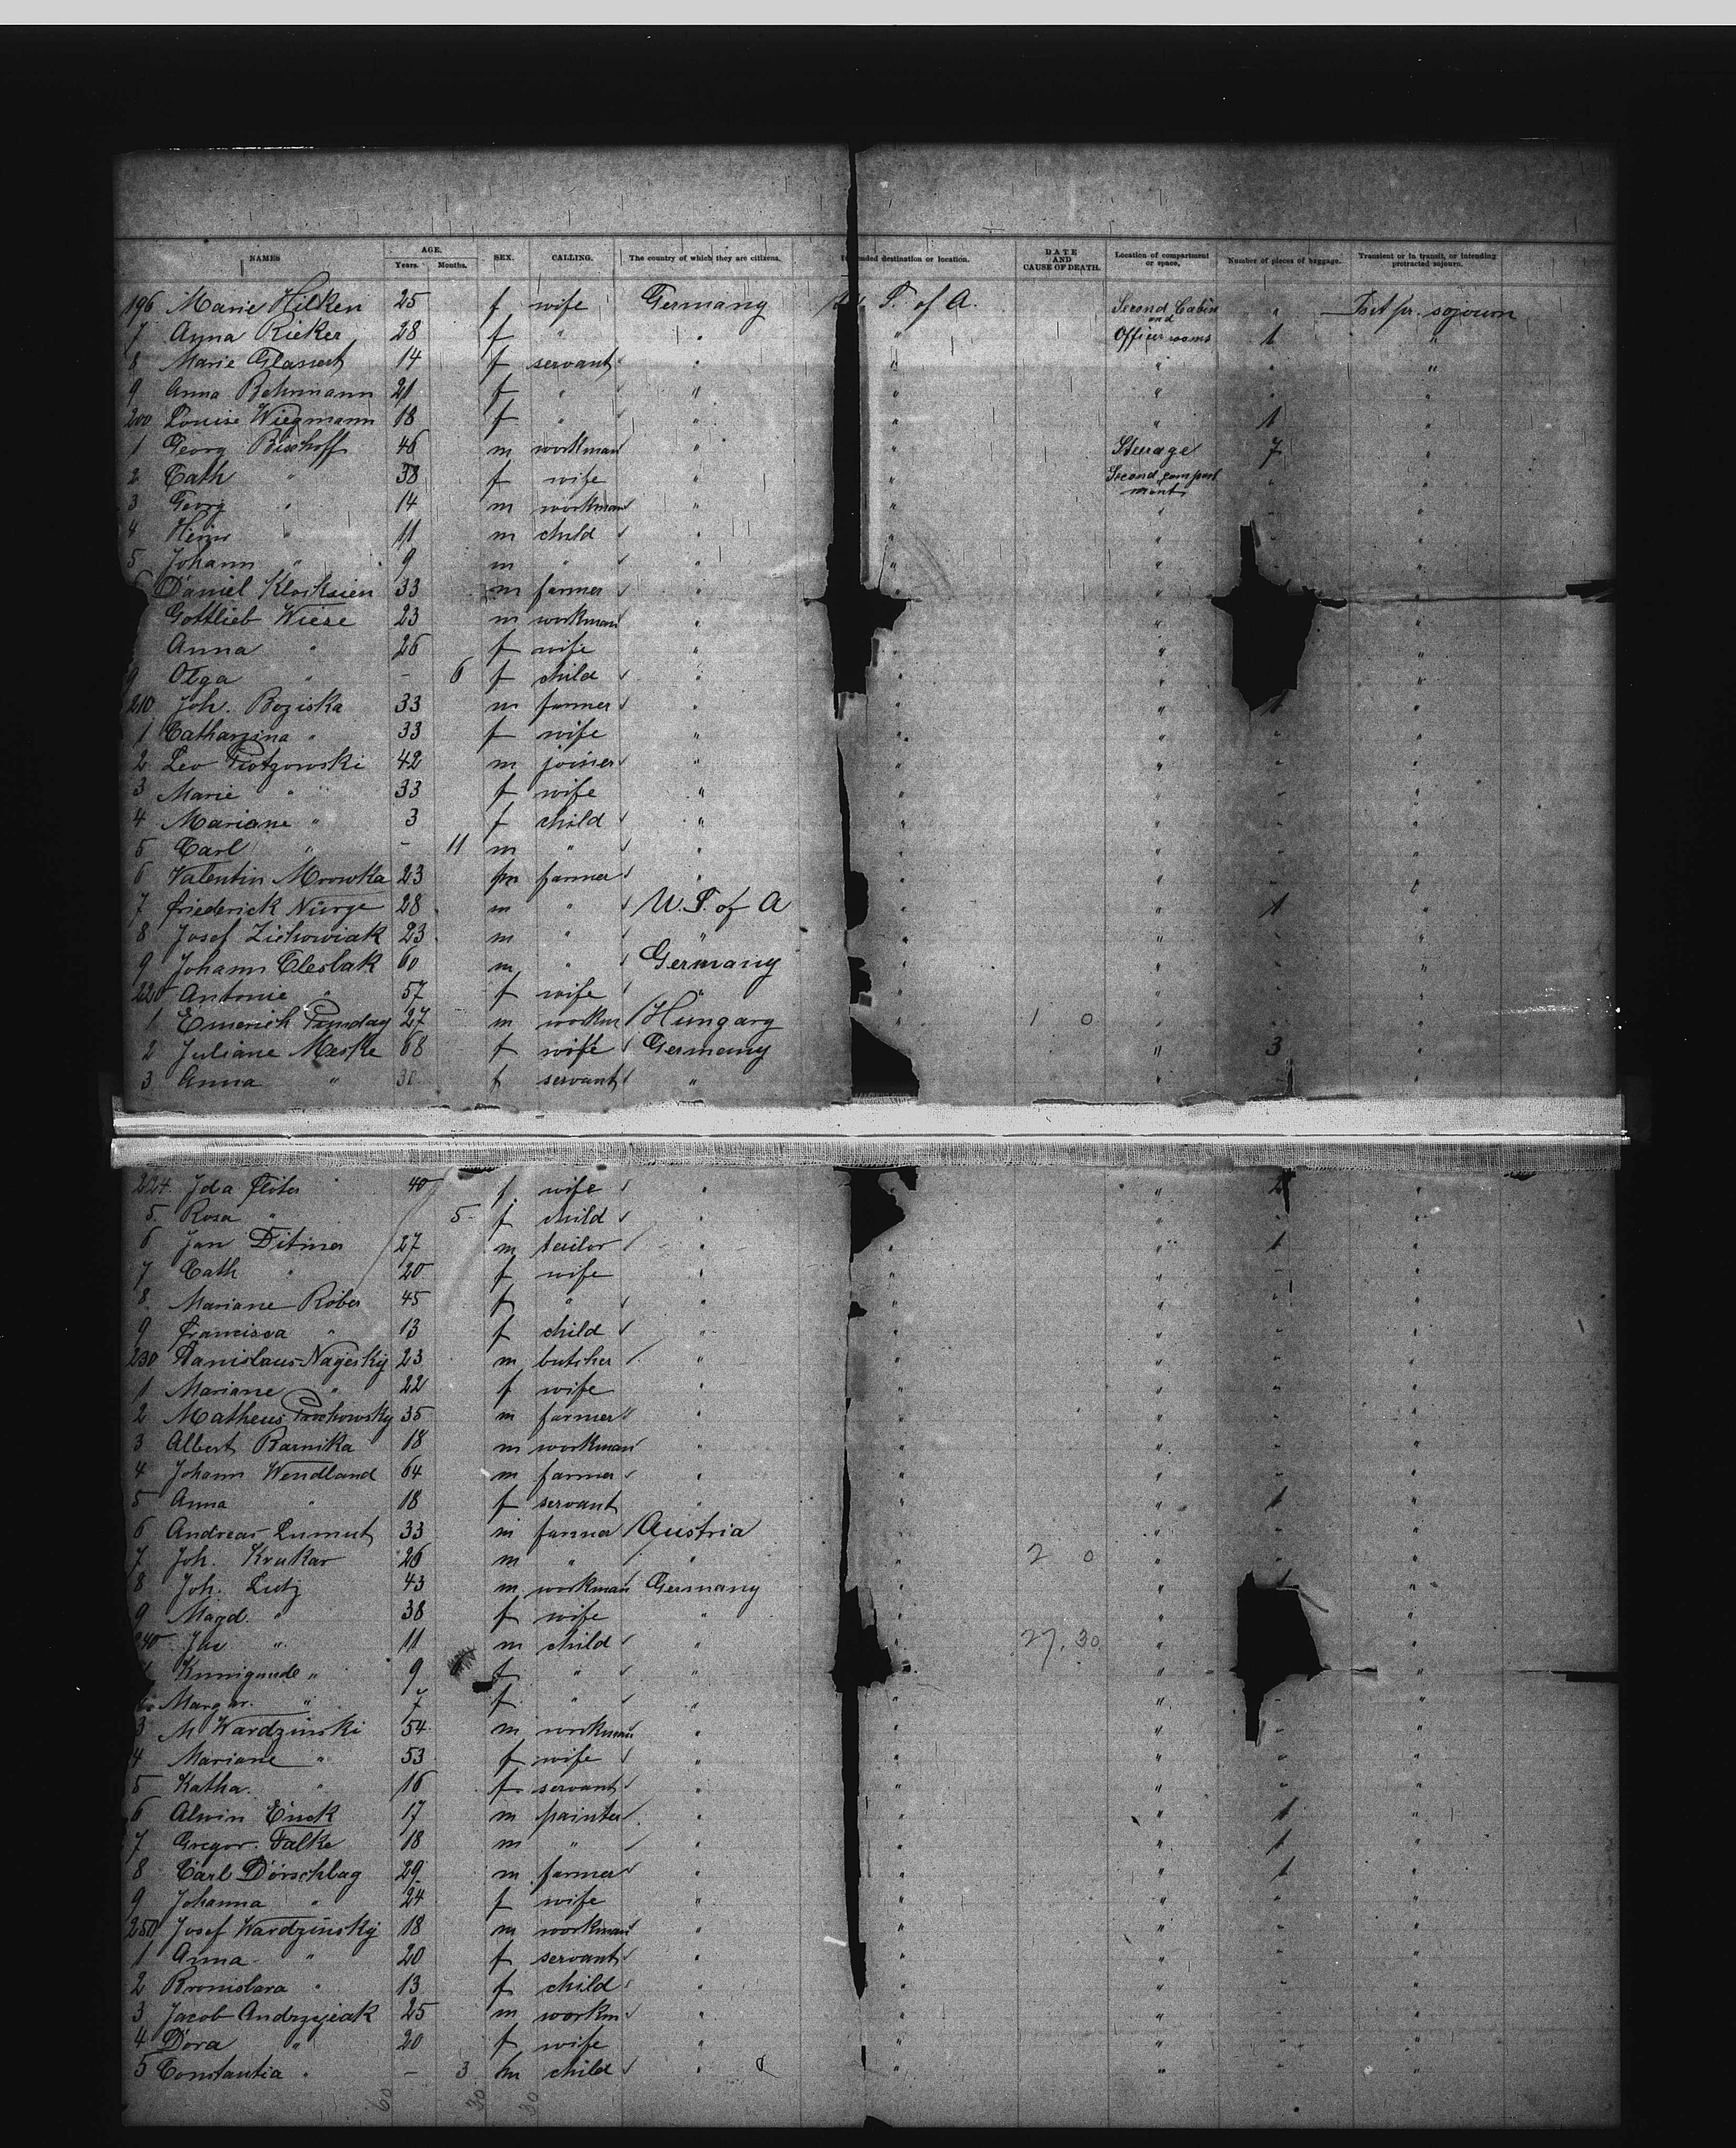 NAMES AGE. SEX. CALLING. The country of which they are citizens. destination or location. DATE AND CAUSE OF DEATH. Location of compartment or space. Number of pieces of baggage. Transient or in transit, or intending protracted sojourn.
Years. Months.
196 Marie Hilken 25 f wife Germany S. of A. Second Cabin " sojourn
and
7 Anna Rieker 28 f " " " Officer rooms 1 "
8 Marie Glanert 14 f servant " " " " "
9 Anna Behrmann 21 f " " " " " "
200 Louise Wiegmann 18 f " " " " 1 "
1 Georg Bischoff 46 m workman " " Steerage 7 "
2 Cath " 38 f wife " " Second compart " "
ment
3 Georg " 14 m workman " " " "
4 Heinr " 11 m child " " "
5 Johann " 9 m " " " " "
Daniel 33 m farmer " " "
Gottlieb Wiese 23 m workman " " "
Anna " 26 f wife " " " "
9 Olga " - 6 f child " " " "
210 Joh. Boziska 33 m farmer " " " 1 "
1 Catharina " 33 f wife " " " " "
2 Leo 42 m joiner " " " " "
3 Marie " 33 f wife " " " " "
4 Mariane " 3 f child " " " " "
5 Carl " - 11 m " " " " " "
6 Valentin Mrowka 23 m farmer " " " "
7 Friederick Nürge 28 m " U.S. of A " " 1 "
8 Josef Zichowiak 23 m " " " " " "
9 Johann 60 m " Germany " " " "
220 Antonie " 57 f wife " " " "
1 Emerich 27 m workm Hungary " 1 0 " " "
2 Juliane Meske 68 f wife Germany " 3 "
3 Anna " 30 f servant " " "
224 Ida 40 f wife " " "
5 Rosa " 5 f child " " " "
6 Jan Ditmer 27 m tailor " " " 1 "
7 Cath " 20 f wife " " " "
8 Mariane Röber 45 f " " " " " "
9 Francisca " 13 f child " " " " "
230 Stanislaus Nagesky 23 m butcher " " " " "
1 Mariane " 22 f wife " " " " "
2 Matheus 35 m farmer " " " " "
3 Albert Barnika 18 m workman " " " " "
4 Johann Wendland 64 m farmer " " " " "
5 Anna " 18 f servant " " " 1 "
6 Andreas 33 m farmer Austria " " " "
7 Joh. Krukar 26 m " " " 2 0 " "
8 Joh. Lutz 43 m workman Germany " " 1 "
9 Magd. " 38 f wife " " "
240 " 11 m child " 27,30 " "
1 Kunigunde " 9 f " " " "
2 Margar. " 7 f " " " " "
3 M Wardzinski 54 m workman " " " "
4 Mariane " 53 f wife " " " " "
5 Katha. " 16 f servant " " " " "
6 Alwin Enck 17 m painter " " " 1 "
7 Gregor. Falke 18 m " " " " 1 "
8 Carl Dörschlag 29 m farmer " " " 1 "
9 Johanna " 24 f wife " " " " "
250 Josef Wardzinsky 18 m workman " " " " "
1 Anna " 20 f servant " " " " "
2 Bronislara " 13 f child " " " " "
3 Jacob Andrzejeak 25 m workm " " " " "
4 Dora " 20 f wife " " " "
5 Constantia " - 3 m child " " " " "
60 30 30